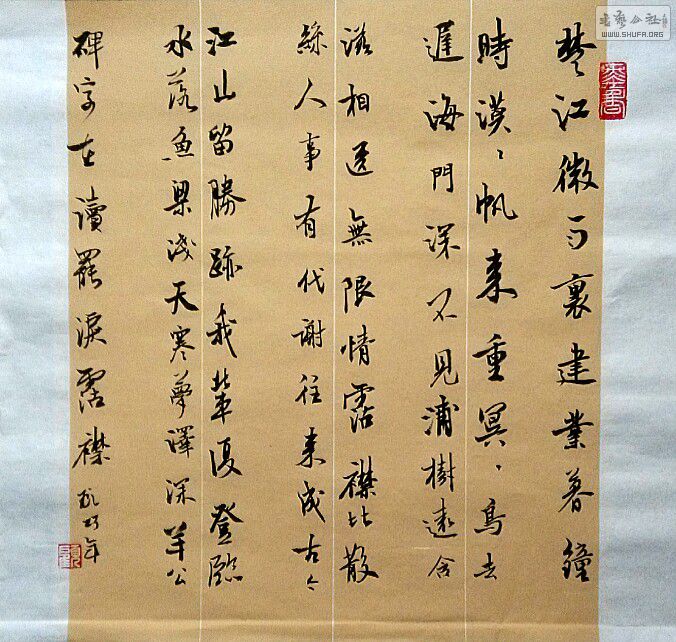 楚江微雨裏建業暮鐘
時漠〻帆来重冥〻鳥去
遲海門深不見浦樹遠含
滋相送無限情霑襟比散
絲人事有代謝往来成古今
江山留勝跡我輩復登臨
水落魚梁淺天寒夢澤深羊公
碑字在讀罷淚霑襟
WWW.SHUFA.ORG